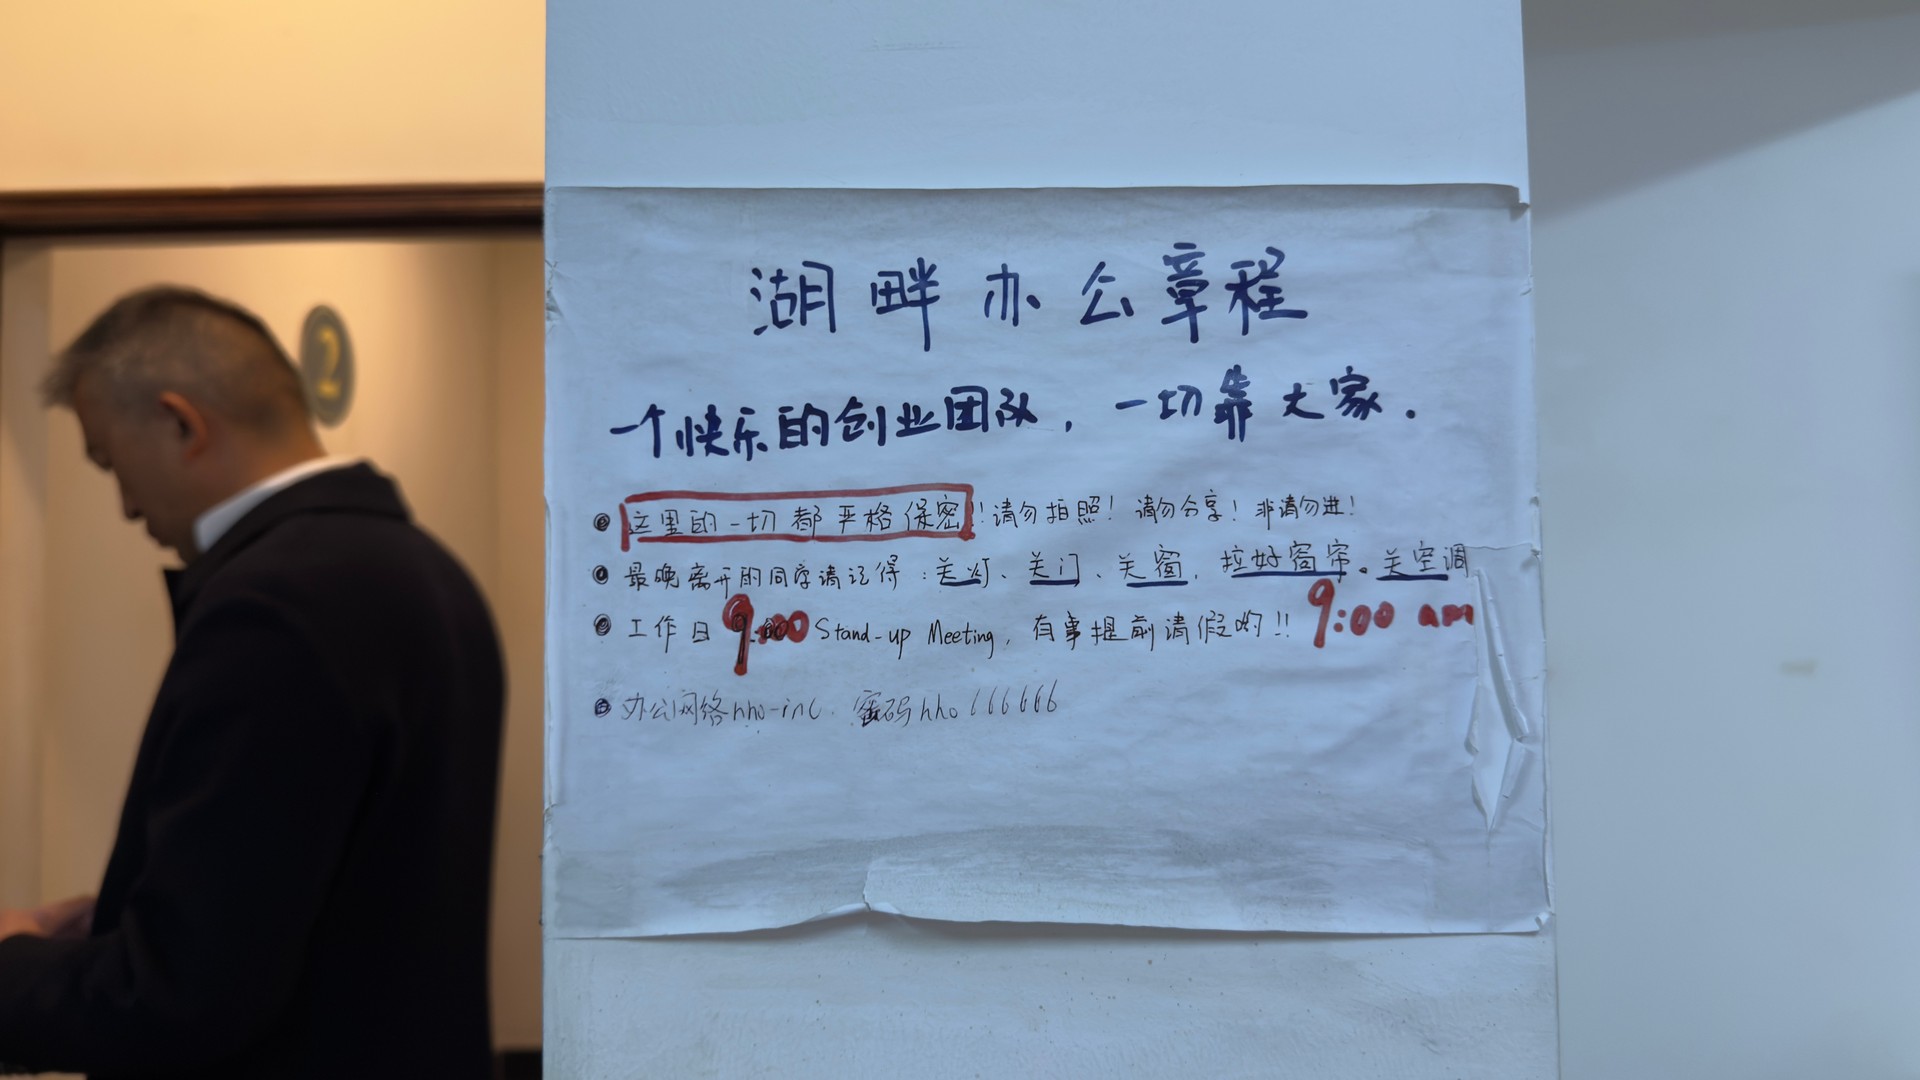 2
湖畔办公章程
一个快乐的创业团队，一切靠大家.
这里的一切都严格保密!!请勿拍照! 请勿分享! 非请勿进!
最晚离开的同学请记得:关灯、关门、关窗, 拉好窗帘。关空调
工作日9:00 Stand-up Meeting, 有事提前请假哟!! 9:00 am
办公网络hho-inc. 密码hho666666